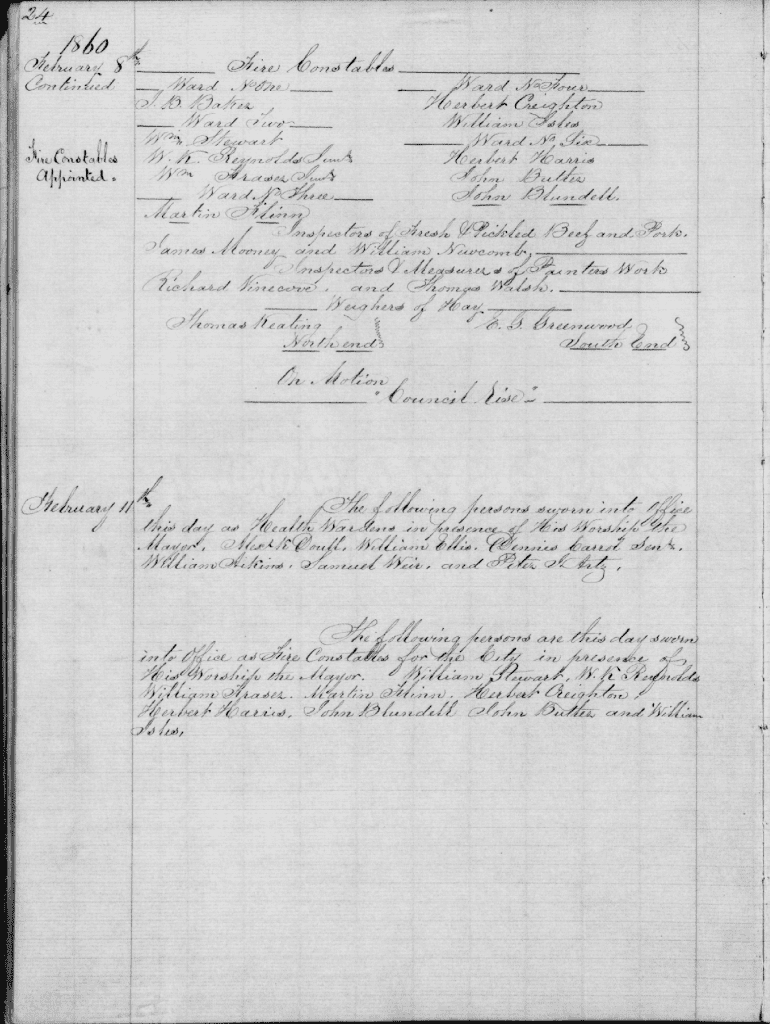 24
1860
February 8th
Continued
Fire Constables
Ward No One
J. B. Baker
Ward Two
Wm Stewart
Fire Constables
Appointed.
W. K. Reynolds Junr
Wm Fraser Junr
Ward No Three
Martin Flinn
Ward No Four
Herbert Creighton
William Isles
Ward No Six
Herbert Harris
John Butler
John Blundell.
Inspectors of Fresh & Pickled Beef and Pork.
James Mooney and William Newcomb,
Inspectors & Measurers of Painters Work
Richard Vinecove, and Thomas Walsh.
Weighers of Hay
Thomas Keating
North end
E. G. Greenwood
South End
On Motion
"Council Rise"
February 11th
The following persons sworn into Office
this day as Health Wardens in presence of His Worship the
Mayor. Alexr K Doull. William Ellis. Dennis Carrol Senr.
William Aikins. Samuel Weir. and Peter Artz.
The following persons are this day sworn
into Office as Fire Constables for the City in presence of
His Worship the Mayor. William Stewart, W. K Reynolds
William Fraser. Martin Flinn. Herbert Creighton.
Herbert Harris. John Blundell John Butler and William
Isles.